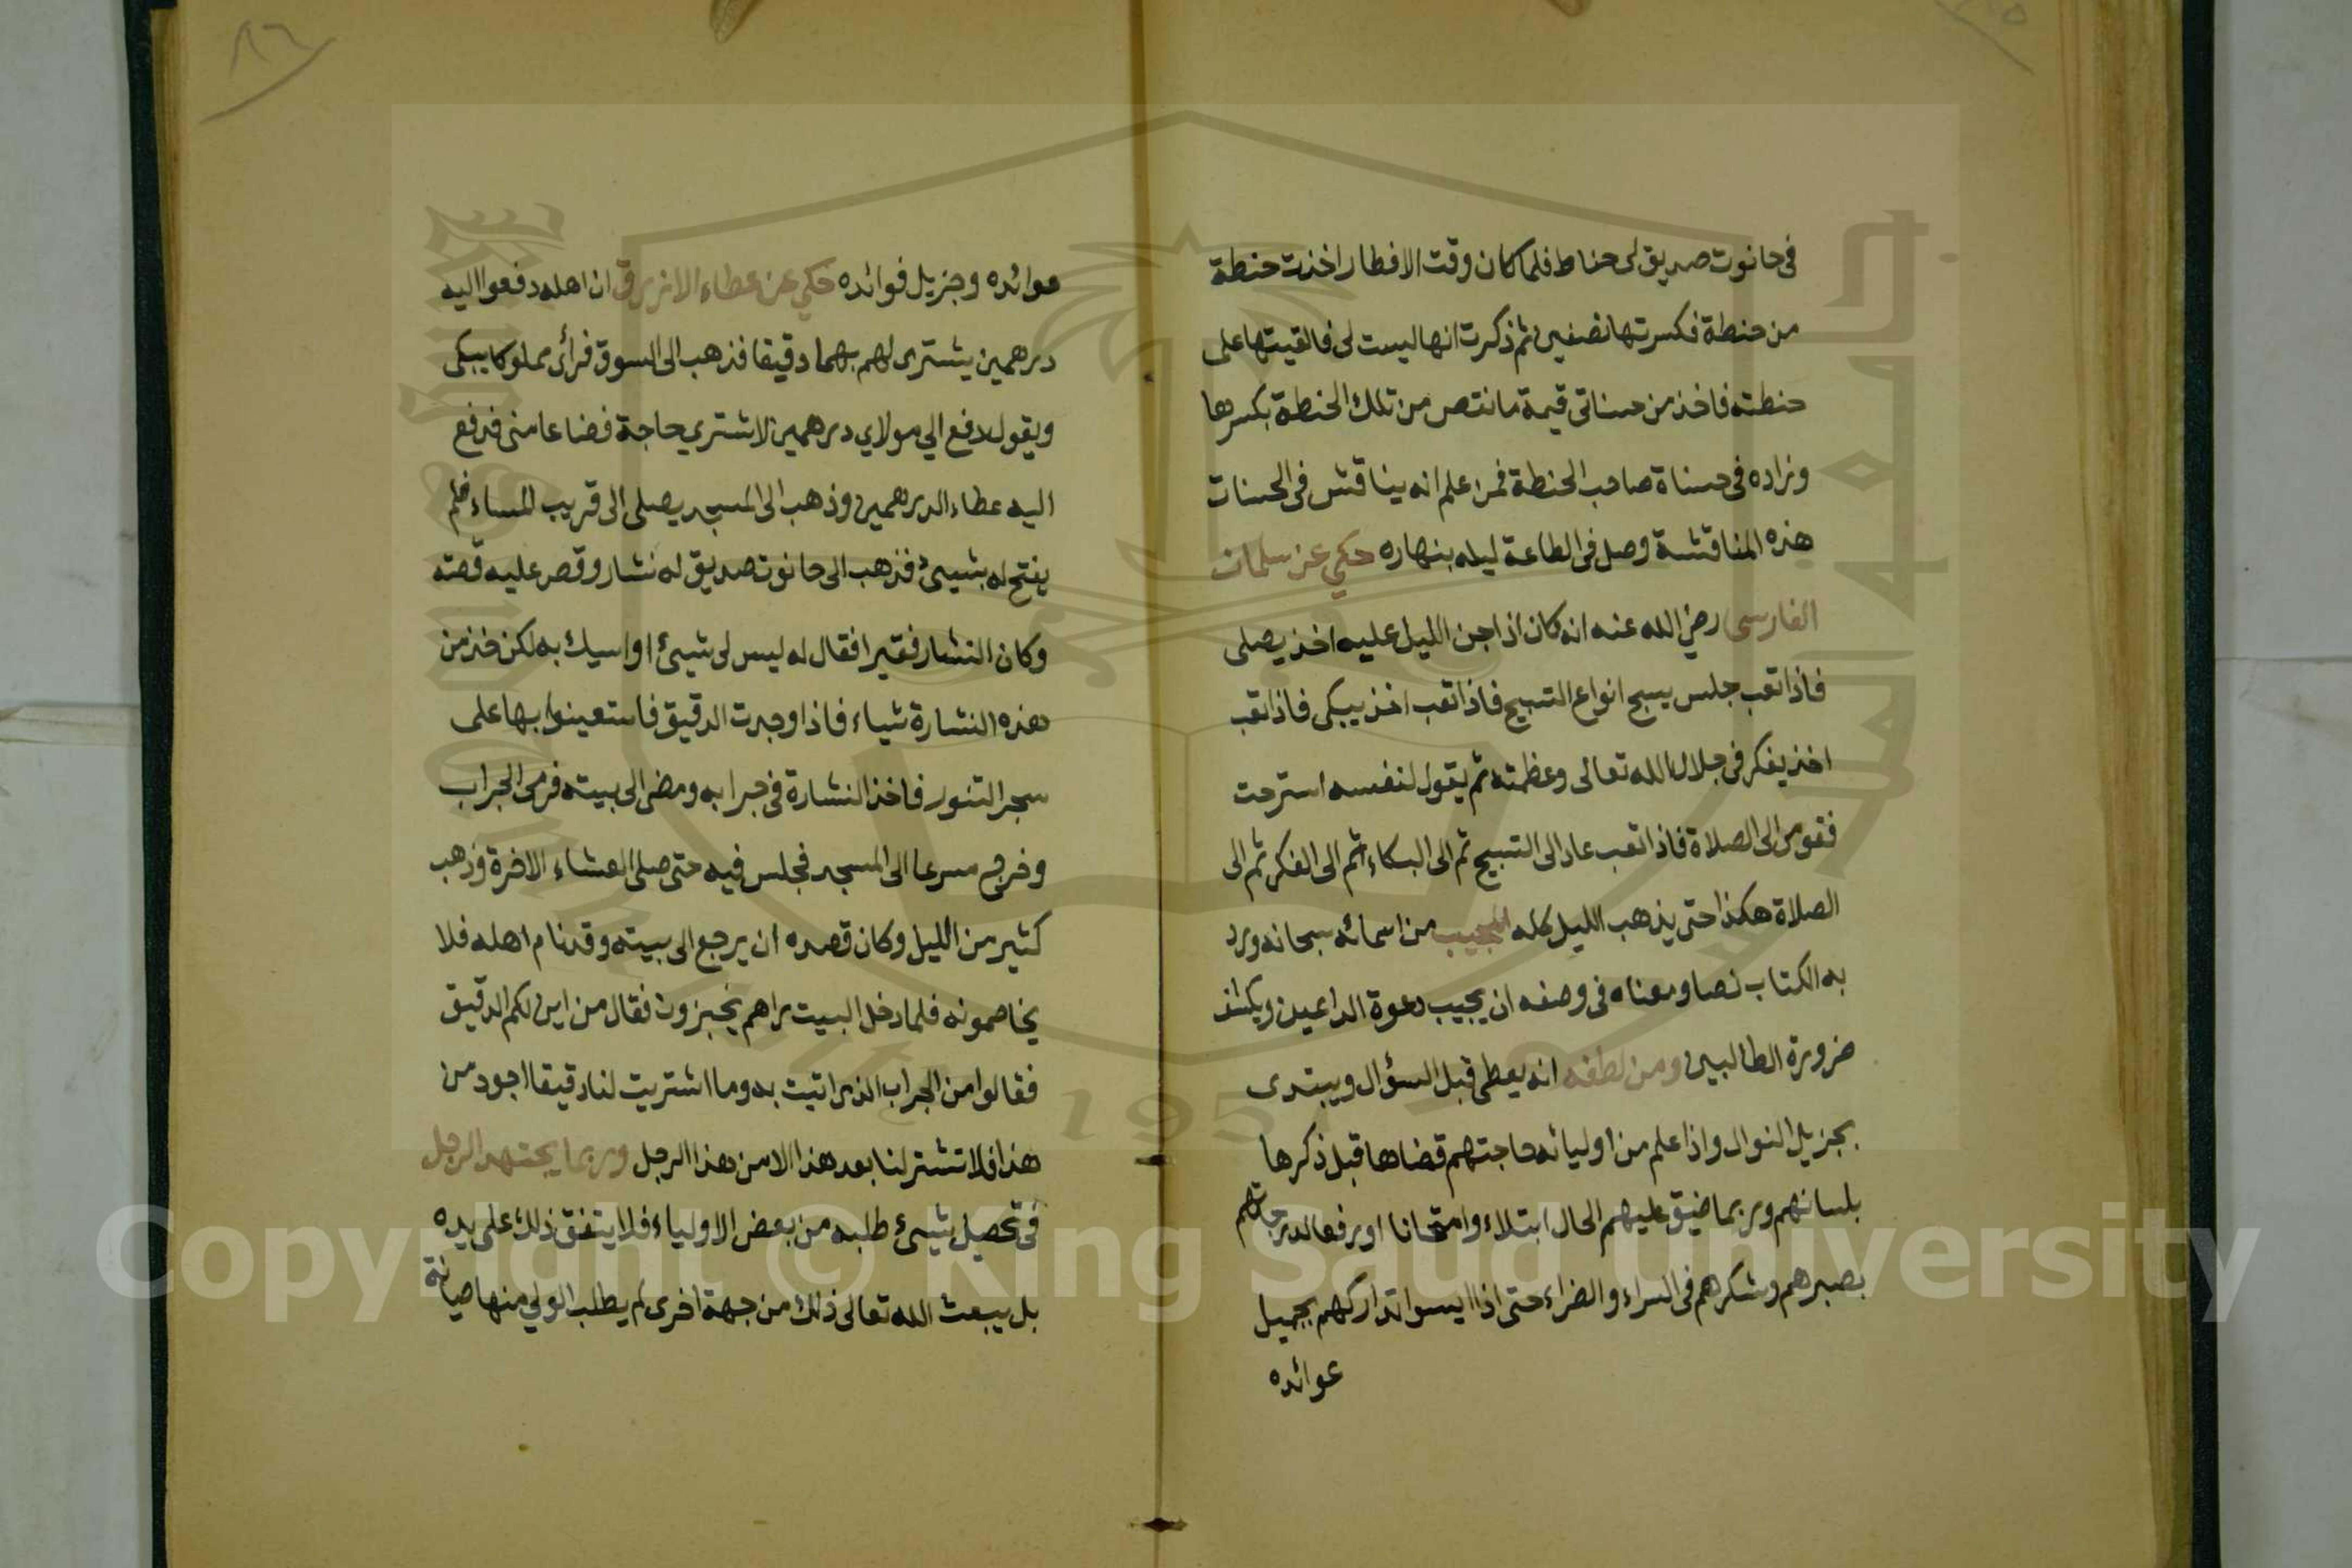 في حانوت صديق لى حناط فلما كان وقت الافطار اخذت حنطة
من حنطة فكسرتها نصفين ثم ذكرت انها ليست لى فالقيتها على
حنطته فاخذ من حسناتى قيمة ما نقص من تلك الحنطة بكسرها
وزاده فى حسناة صاحب الحنطة فمن علم انه يناقش فى الحسنات
هذه المناقشة وصل فى الطاعة ليله بنهاره حكي عن سلمان
الفارسى رضي الله عنه انه كان اذا جن الليل عليه اخذ يصلى
فاذا تعب جلس يسبح انواع التسبيح فاذا تعب اخذ يبكى فاذا تعب
اخذ يفكر فى جلال الله تعالى وعظمته ثم يقول لنفسه استرحت
فقومى الى الصلاة فاذا تعب عاد الى التسبيح ثم الى البكاء ثم الى الفكر ثم الى
الصلاة هكذا حتى يذهب الليل كله المجيب من اسمائه سبحانه ورد
به الكتاب نصا ومعناه فى وصفه ان يجيب دعوة الداعين ويكشف
ضرورة الطالبين ومن لطفه انه يعطى قبل السؤال ويبتدى
بجزيل النوال واذا علم من اوليائه حاجتهم قضاها قبل ذكرها
بلسانهم وربما ضيق عليهم الحال ابتلاء وامتحانا او رفعا لدرجاتهم
بصبرهم وشكرهم فى السراء والضراء حتى اذا ايسوا تداركهم بجميل
عوائده
عوائده وجزيل فوائده حكي عن عطاء الازرق ان اهله دفعوا اليه
درهمين يشترى لهم بهما دقيقا فذهب الى السوق فرأى مملوكا يبكى
ويقول دفع الي مولاي درهمين لاشتري حاجة فضاعا منى فدفع
اليه عطاء الدرهمين وذهب الى المسجد يصلى الى قريب المساء فلم
يفتح له بشيئ فذهب الى حانوت صديق له نشار وقص عليه قصته
وكان النشار فقيرا فقال له ليس لى شيئ اواسيك به لكن خذ من
هذه النشارة شياء فاذا وجدت الدقيق فاستعينوا بها على
سجر التنور فاخذ النشارة فى جرابه ومضى الى بيته فرمى الجراب
وخرج مسرعا الى المسجد فجلس فيه حتى صلى العشاء الاخرة وذهب
كثير من الليل وكان قصده ان يرجع الى بيته وقد نام اهله فلا
يخاصمونه فلما دخل البيت راهم يخبزون فقال من اين لكم الدقيق
فقالوا من الجراب الذى اتيت به وما اشتريت لنا دقيقا اجود من
هذا فلا تشتر لنا بعد هذا الا من هذا الرجل وربما يجتهد الرجل
فى تحصيل شيئ طلبه من بعض الاولياء فلا يتفق ذلك على يده
بل يبعث الله تعالى ذلك من جهة اخرى لم يطلب الولي منها صيانة
Copyright © King Saud University
1957